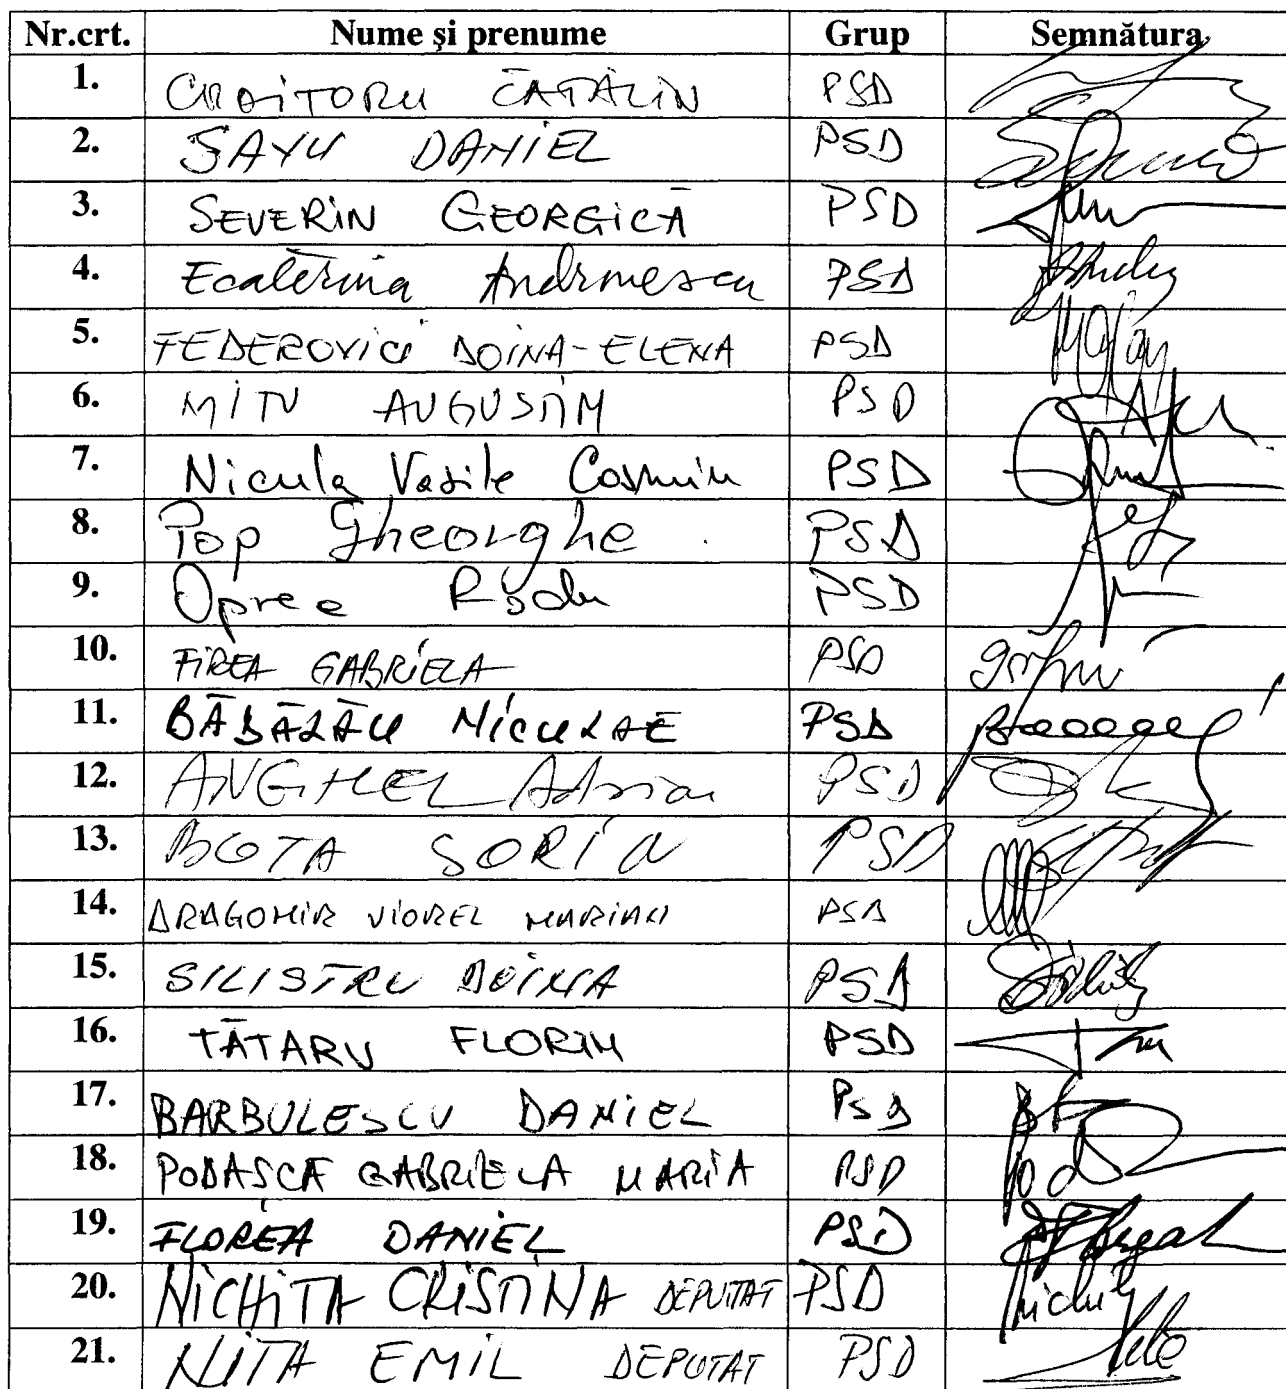 Nr.crt. Nume şi prenume Grup Semnătura
1. CROITORU CĂTĂLIN PSD
2. SAVU DANIEL PSD
3. SEVERIN GEORGICĂ PSD
4. Ecaterina Andronescu PSD
5. FEDEROVICI DOINA-ELENA PSD
6. MITU AUGUSTIN PSD
7. Nicula Vasile Cosmin PSD
8. Pop Gheorghe PSD
9. Oprea Radu PSD
10. FIREA GABRIELA PSD
11. BĂDĂLĂU NICULAE PSD
12. ANGHEL Adrian PSD
13. BOTA SORIN PSD
14. DRAGOMIR VIOREL MARIAN PSD
15. SILISTRU DOINA PSD
16. TĂTARU FLORIN PSD
17. BARBULESCU DANIEL PSD
18. PODASCA GABRIELA MARIA PSD
19. FLOREA DANIEL PSD
20. NICHITA CRISTINA DEPUTAT PSD
21. NITA EMIL DEPUTAT PSD